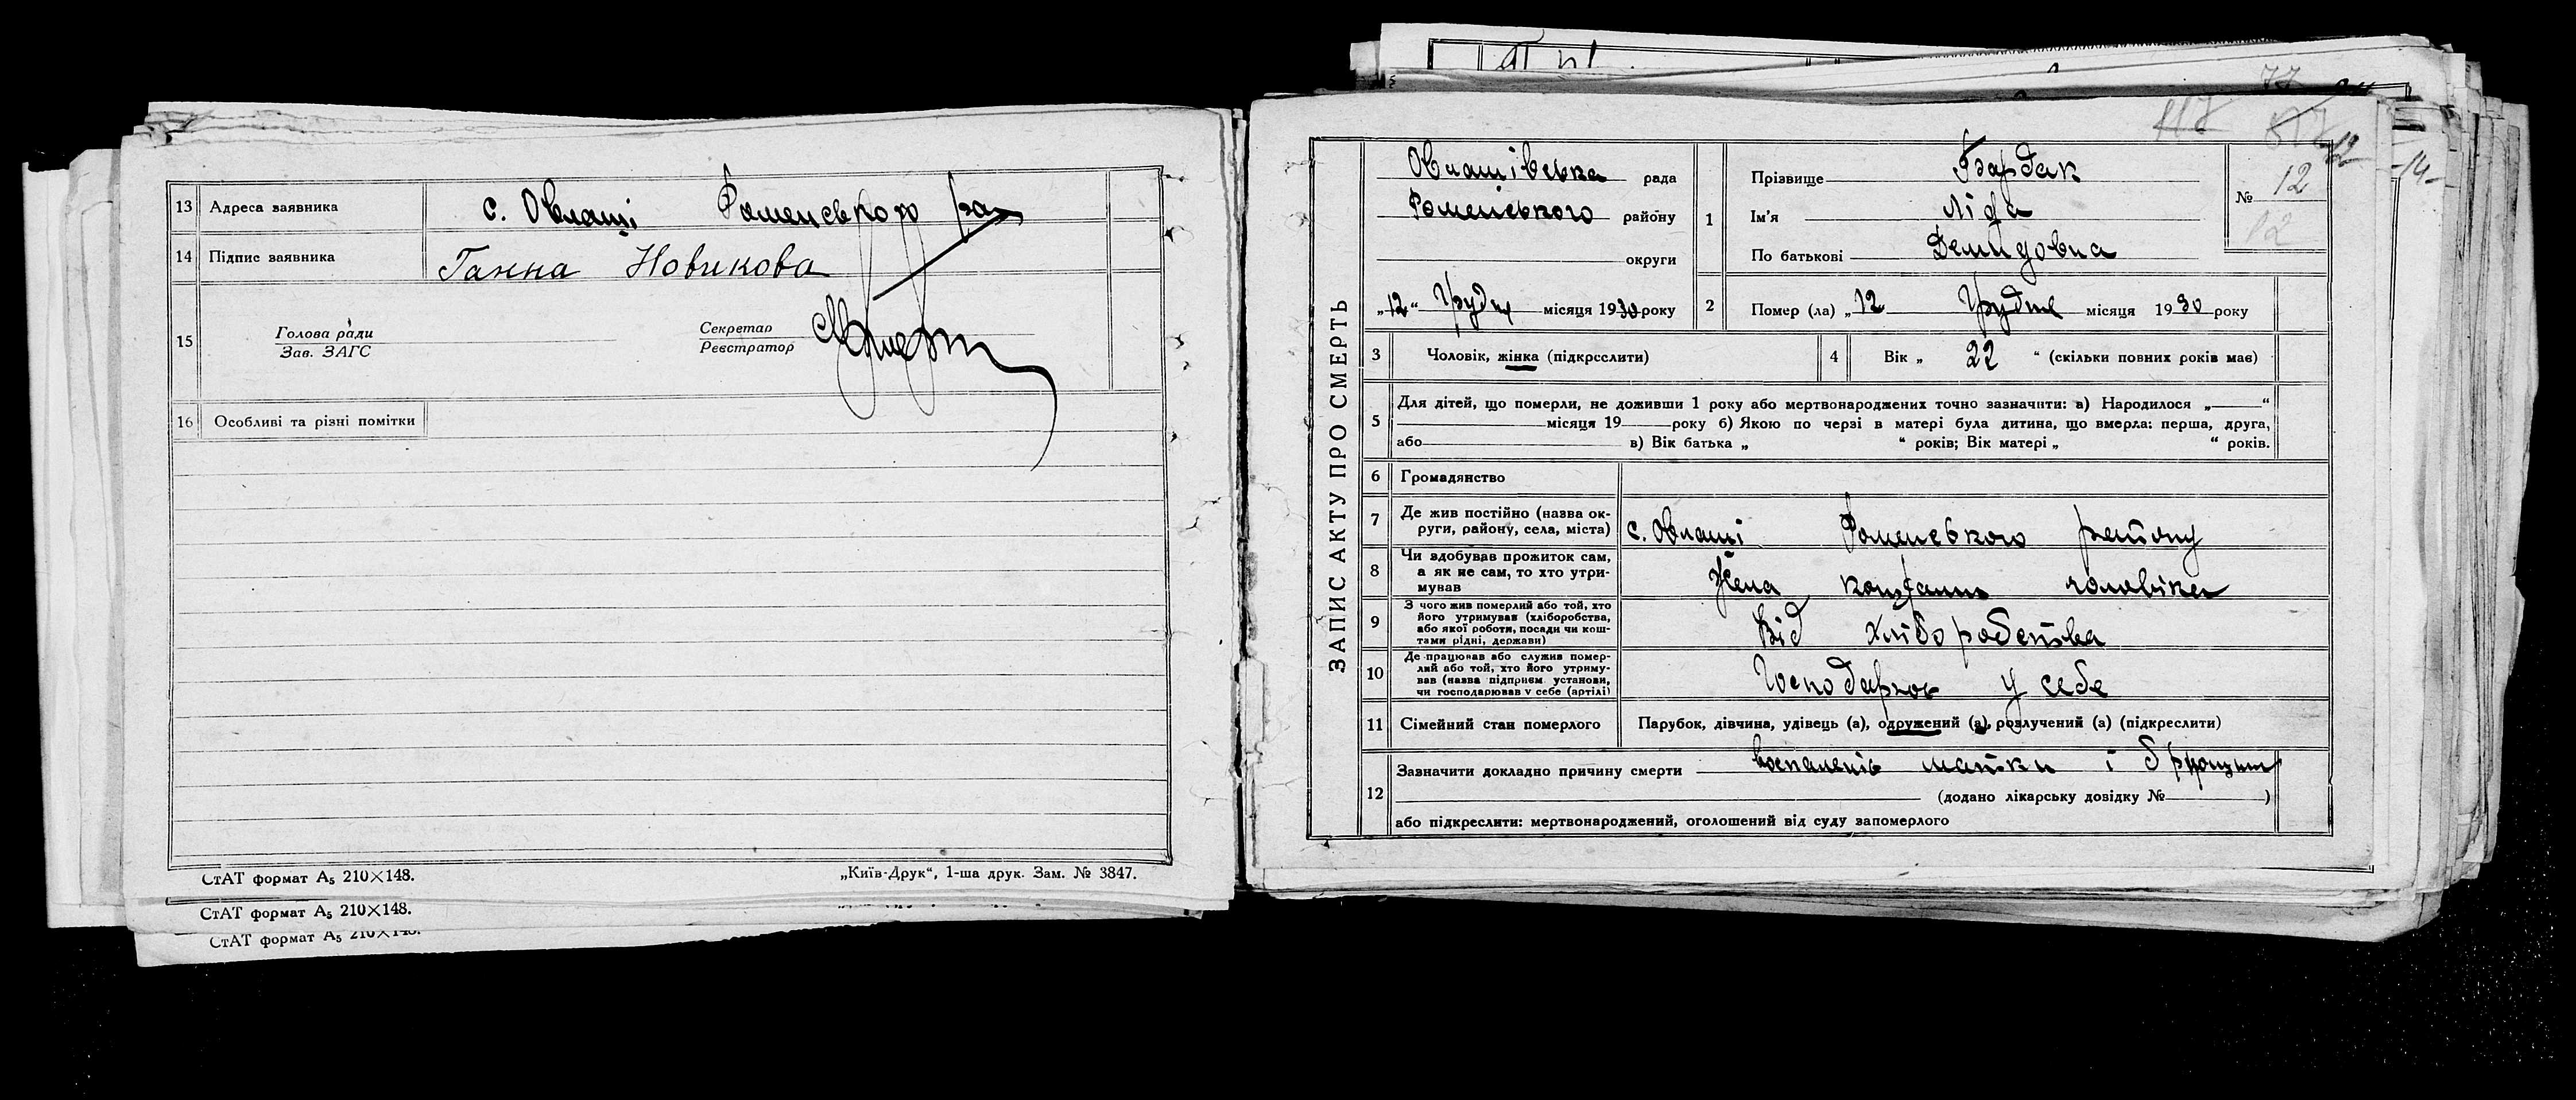 13 Адреса заявника с. Овлаші Роменського рай
14 Підпис заявника Ганна Новикова
15 Голова ради
Зав. ЗАГС
Секретар
Реєстратор
16 Особливі та різні помітки
СтАТ формат А5 210×148.
„Київ-Друк“, 1-ша друк. Зам. № 3847.
СтАТ формат А5 210×148.
СтАТ формат А5 210×148.
117
77
12
14
ЗАПИС АКТУ ПРО СМЕРТЬ
Овлашівська рада
Роменського району
округи
„12“ Грудня місяця 1930 року
1 Прізвище Бардак
Ім'я Ліда
По батькові Демидовна
№ 12
12
2 Помер (ла) „12 Грудня місяця 1930 року
3 Чоловік, жінка (підкреслити)
4 Вік „ 22 “ (скільки повних років має)
5 Для дітей, що померли, не доживши 1 року або мертвонароджених точно зазначити: а) Народилося „ “
місяця 19 року б) Якою по черзі в матері була дитина, що вмерла: перша, друга,
або в) Вік батька „ “ років; Вік матері „ “ років.
6 Громадянство
7 Де жив постійно (назва округи, району, села, міста) с. Овлаші Роменського району
8 Чи здобував прожиток сам, а як не сам, то хто утримував Жила коштами чоловіка
9 З чого жив померлий або той, хто його утримував (хліборобства, або якої роботи, посади чи коштами рідні, держави) Від хліборобства
10 Де працював або служив померлий або той, хто його утримував (назва підприєм. установи, чи господарював у себе (артілі) Господарює у себе
11 Сімейний стан померлого Парубок, дівчина, удівець (а), одружений (а), розлучений (а) (підкреслити)
12 Зазначити докладно причину смерти воспаленіє матки і брушини
(додано лікарську довідку № )
або підкреслити: мертвонароджений, оголошений від суду запомерлого